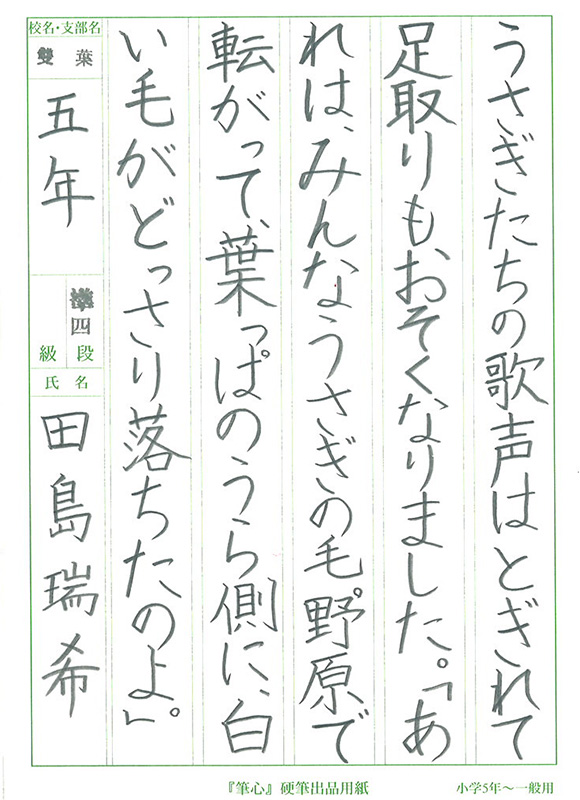 うさぎたちの歌声はとぎれて
足取りもおそくなりました。「あ
れは、みんなうさぎの毛。野原で
転がって、葉っぱのうら側に、白
い毛がどっさり落ちたのよ」。
校名・支部名
雙葉
五年
準四
級段
氏名
田島瑞希
『筆心』硬筆出品用紙
小学5年〜一般用